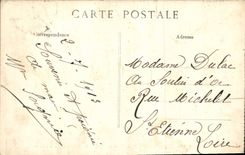 CARTE POSTALE
Correspondance
Adresse
2-7-1913
Souvenir
de ma
Madame Dulac
Au Soulier d'Or
Rue Michelet
St Etienne
Loire